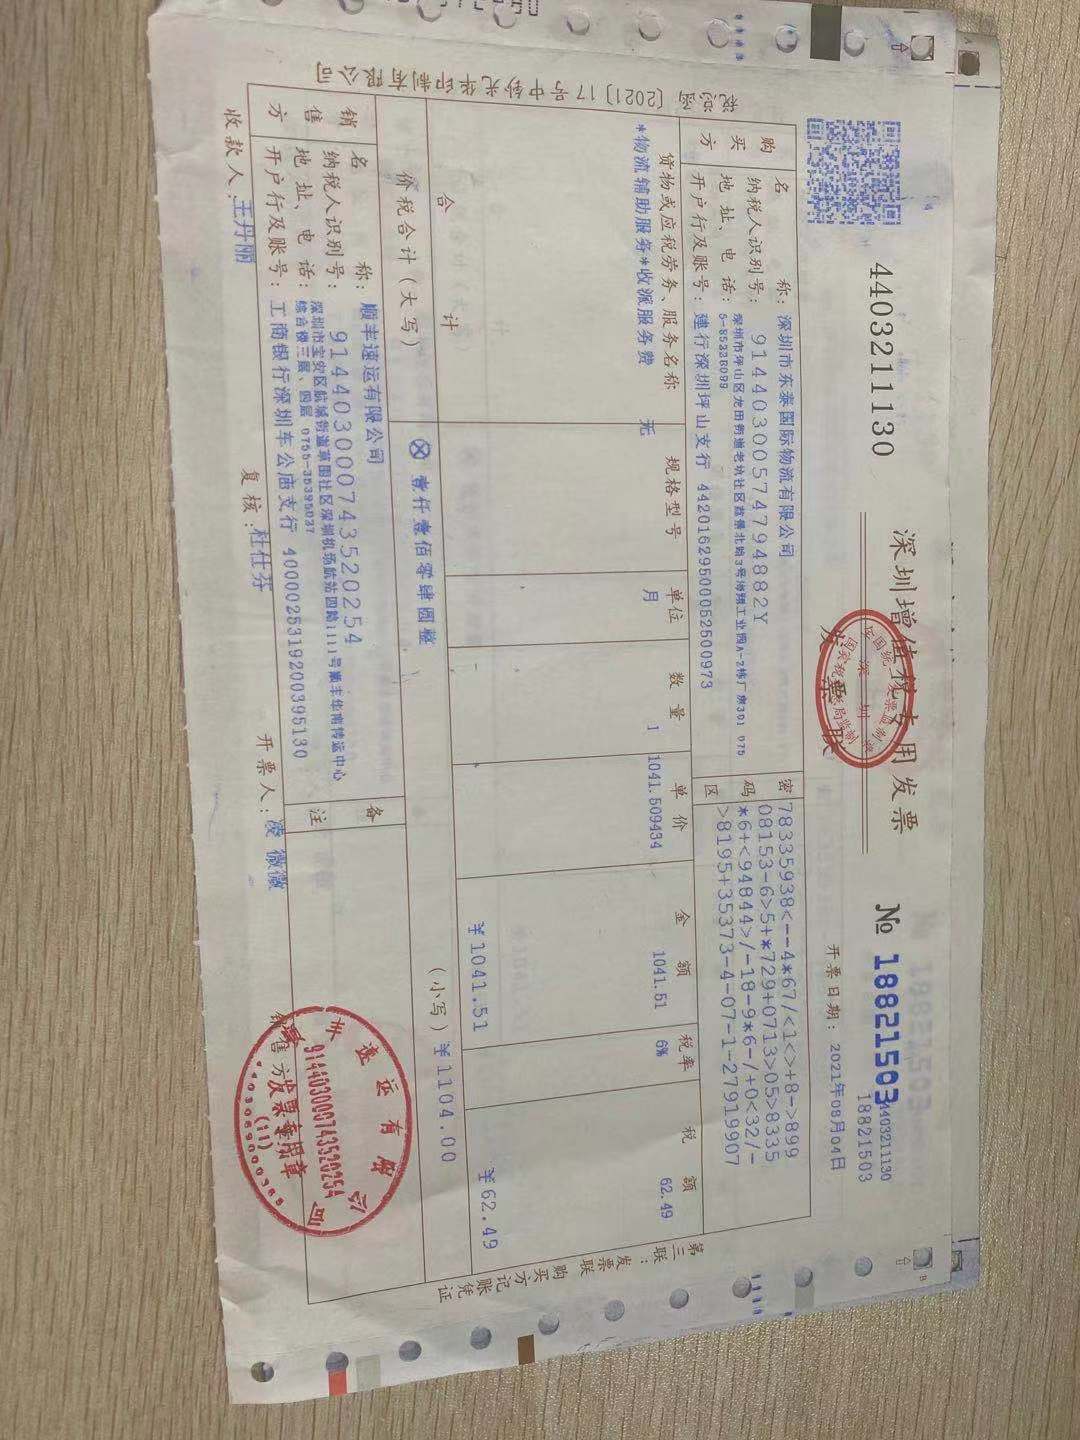 4403211130
深圳增值税专用发票
发票联
№ 18821503
4403211130
18821503
开票日期: 2021年08月04日
税总函〔2021〕17号中钞光华印制有限公司
购买方
名称: 深圳市东泰国际物流有限公司
纳税人识别号: 91440300574794882Y
地址、电话: 深圳市坪山区龙田街道老坑社区
3号
工业园A-2栋厂房301 075
5-85338099
开户行及账号: 建行深圳坪山支行 44201629500052500973
密码区
78335938<--4*67/<1<>+8->899
08153-6>5+*729+0713>05>8335
*6+<94844>/-18-9*6-/+0<32/-
>8195+35373-4-07-1-27919907
货物或应税劳务、服务名称 规格型号 单位 数量 单价 金额 税率 税额
*物流辅助服务*收派服务费 无 月 1 1041.509434 1041.51 6% 62.49
合计 ¥1041.51 ¥62.49
价税合计(大写) ⊗ 壹仟壹佰零肆圆整 (小写) ¥1104.00
销售方
名称: 顺丰速运有限公司
纳税人识别号: 914403000743520254
地址、电话: 深圳市宝安区航城街道草围社区深圳机场航站四路1111号顺丰华南转运中心
综合楼三层、四层 0755-35395037
开户行及账号: 工商银行深圳车公庙支行 4000025319200395130
备注
收款人: 王丹丽 复核: 杜仕芬 开票人: 凌薇薇
销售方
第三联:发票联 购买方记账凭证
全国统一发票监制章
深圳
国家税务总局监制
顺丰速运有限公司
914403000743520254
发票专用章
(11)